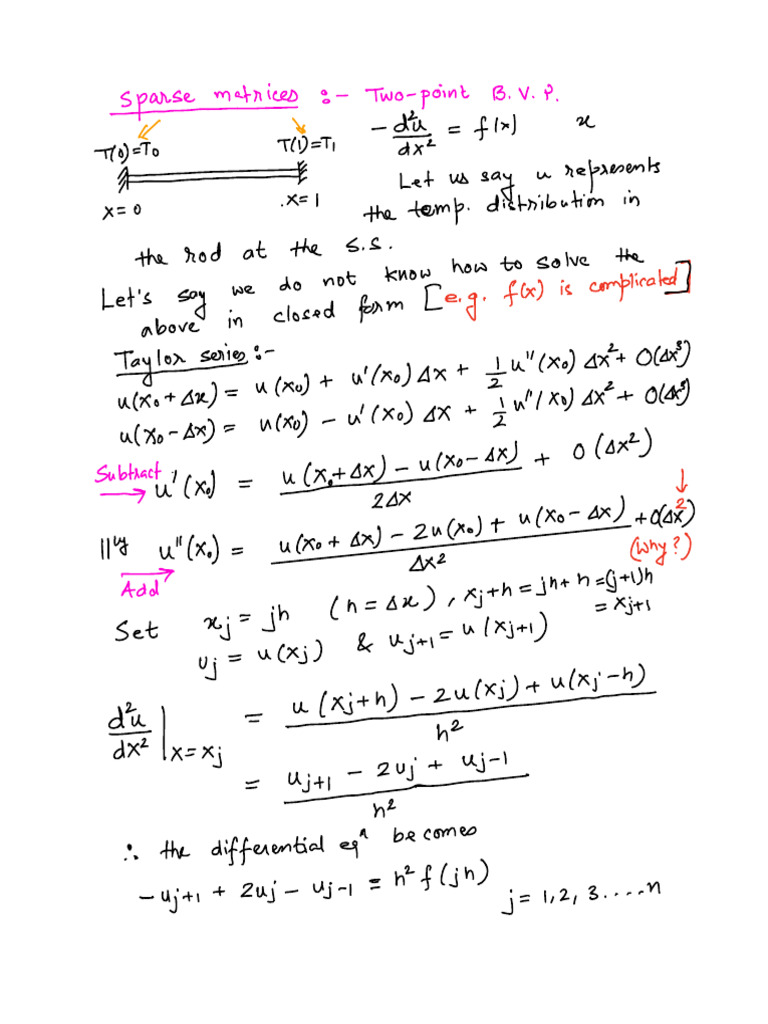 Sparse matrices :- Two-point B.V.P.
T(0)=T₀ T(1)=T₁ -d²u/dx² = f(x) x
x=0 x=1 Let us say u represents
the temp. distribution in
the rod at the s.s.
Let's say we do not know how to solve the
above in closed form [e.g. f(x) is complicated]
Taylor series:-
u(x₀+Δx) = u(x₀) + u'(x₀)Δx + 1/2 u''(x₀) Δx² + O(Δx³)
u(x₀-Δx) = u(x₀) - u'(x₀) Δx + 1/2 u''(x₀) Δx² + O(Δx³)
Subtract u'(x₀) = (u(x₀+Δx) - u(x₀-Δx))/(2Δx) + O(Δx²)
||ly u''(x₀) = (u(x₀+Δx) - 2u(x₀) + u(x₀-Δx))/Δx² + O(Δx²)
Add (Why?)
Set xⱼ = jh (h = Δx), xⱼ+h = jh+h = (j+1)h
= xⱼ₊₁
uⱼ = u(xⱼ) & uⱼ₊₁ = u(xⱼ₊₁)
d²u/dx²|x=xⱼ = (u(xⱼ+h) - 2u(xⱼ) + u(xⱼ-h))/h²
= (uⱼ₊₁ - 2uⱼ + uⱼ₋₁)/h²
∴ the differential eqⁿ becomes
-uⱼ₊₁ + 2uⱼ - uⱼ₋₁ = h² f(jh) j = 1,2,3....n